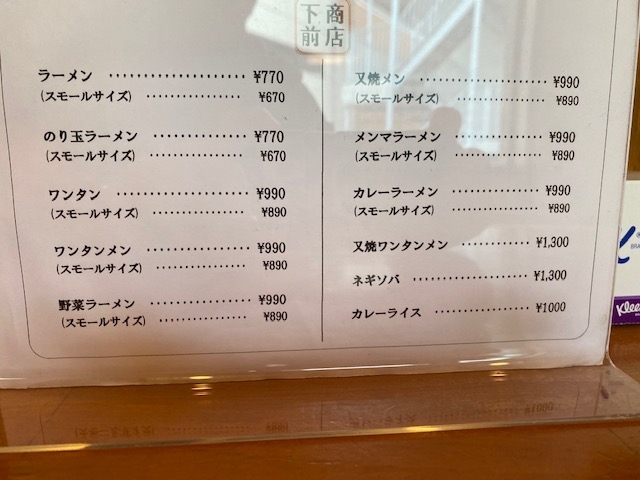 商店
下前
ラーメン ¥770
(スモールサイズ) ¥670
のり玉ラーメン ¥770
(スモールサイズ) ¥670
ワンタン ¥990
(スモールサイズ) ¥890
ワンタンメン ¥990
(スモールサイズ) ¥890
野菜ラーメン ¥990
(スモールサイズ) ¥890
叉焼メン ¥990
(スモールサイズ) ¥890
メンマラーメン ¥990
(スモールサイズ) ¥890
カレーラーメン ¥990
(スモールサイズ) ¥890
叉焼ワンタンメン ¥1,300
ネギソバ ¥1,300
カレーライス ¥1000
Klee